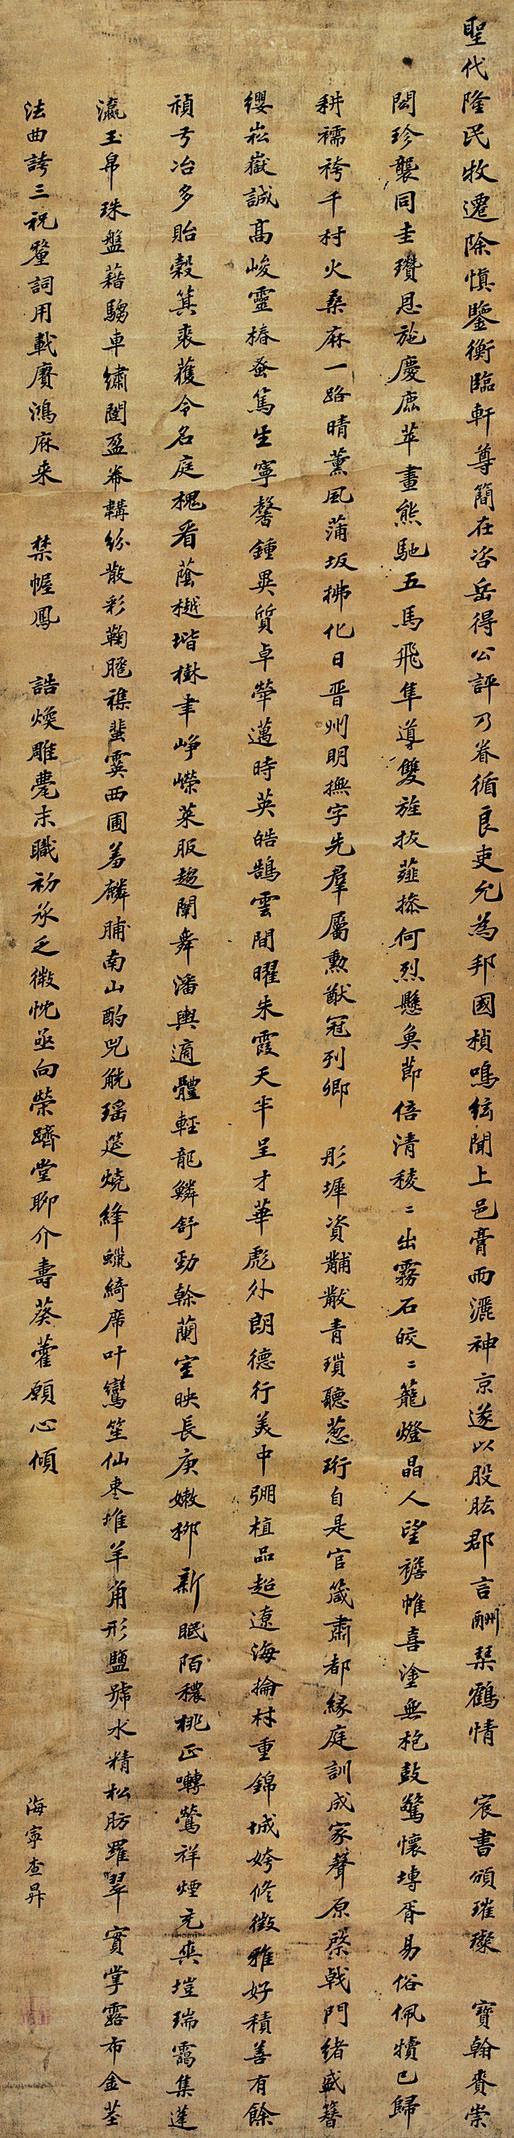 聖代隆民牧遷除慎鑒衡臨軒尊簡在咨岳得公評乃眷循良吏允為邦國楨鳴絃聞上邑膏雨灑神京遂以股肱郡言酬琹鶴情 宸書頒璀璨 寶翰賚崇
閎珍襲同圭瓚恩施慶庶苹畫熊馳五馬飛隼導雙旌拔薤摻何烈懸魚節倍清稜〻出霧石皎〻籠燈晶人望襜帷喜塗無枹鼓驚懷塼胥易俗佩犢已歸
耕襦袴千村火桑麻一路晴薰風蒲坂拂化日晋州明撫字先羣屬勲猷冠列卿 彤墀資黼黻青瑣聽葱珩自是官箴肅都緣庭訓成家聲原棨戟門緒盛簪
纓崧嶽誠高峻靈椿蚤篤生寧馨鍾異質卓犖邁時英皓鵠雲間曜朱霞天半呈才華彪外朗德行美中弸植品超遠海掄材重錦城姱修徵雅好積善有餘
禎弓冶多貽穀箕裘蒦令名庭槐看蔭樾堦樹聿崢嶸萊服趨闈舞潘輿適體輕龍鱗舒勁榦蘭室映長庚嫩柳新眠陌穠桃正囀鶯祥煙充爽塏瑞靄集蓬
瀛玉帛珠盤藉騶車繡闥盈帣韝紛散彩鞠跽襍蜚霙西圃羞麟脯南山酌兕觥瑶筵燒絳蠟綺席叶鸞笙仙棗堆羊角形鹽號水精松肪羅翠 實掌露布金莖
法曲誇三祝釐詞用載賡鴻麻来 禁幄鳳 誥煥雕甍末職初承乏微忱亟向榮躋堂聊介壽葵藿願心傾
海寧查昇